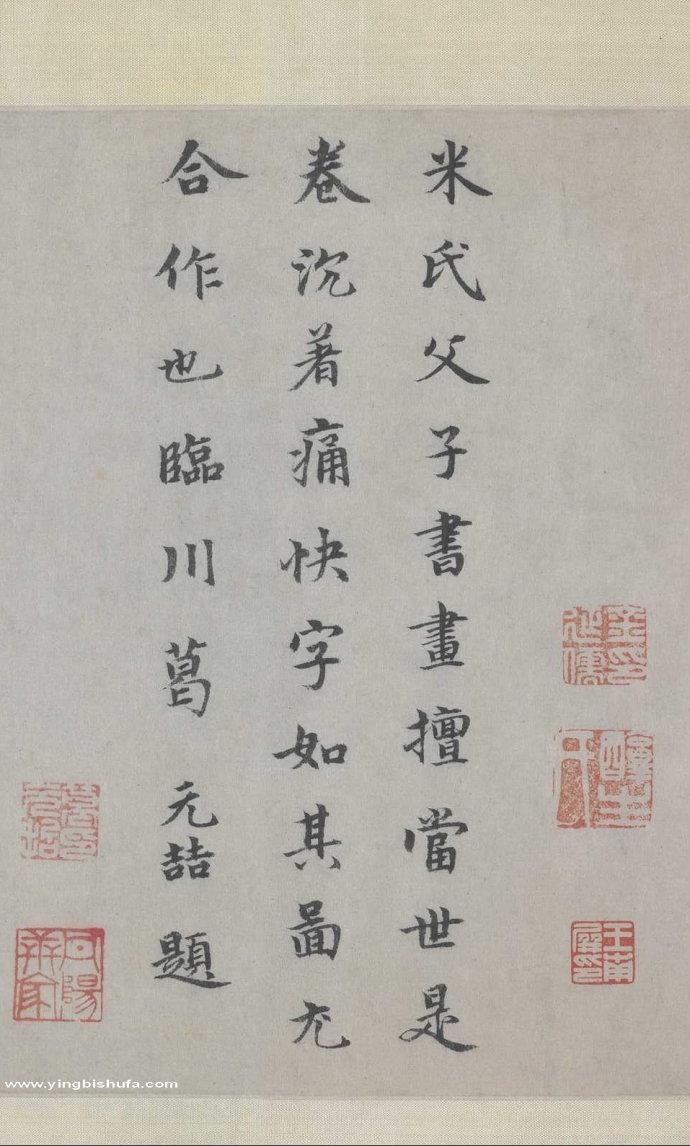 米氏父子書畫擅當世是
卷沉著痛快字如其畐尤
合作也臨川葛元喆題
www.yingbishufa.com